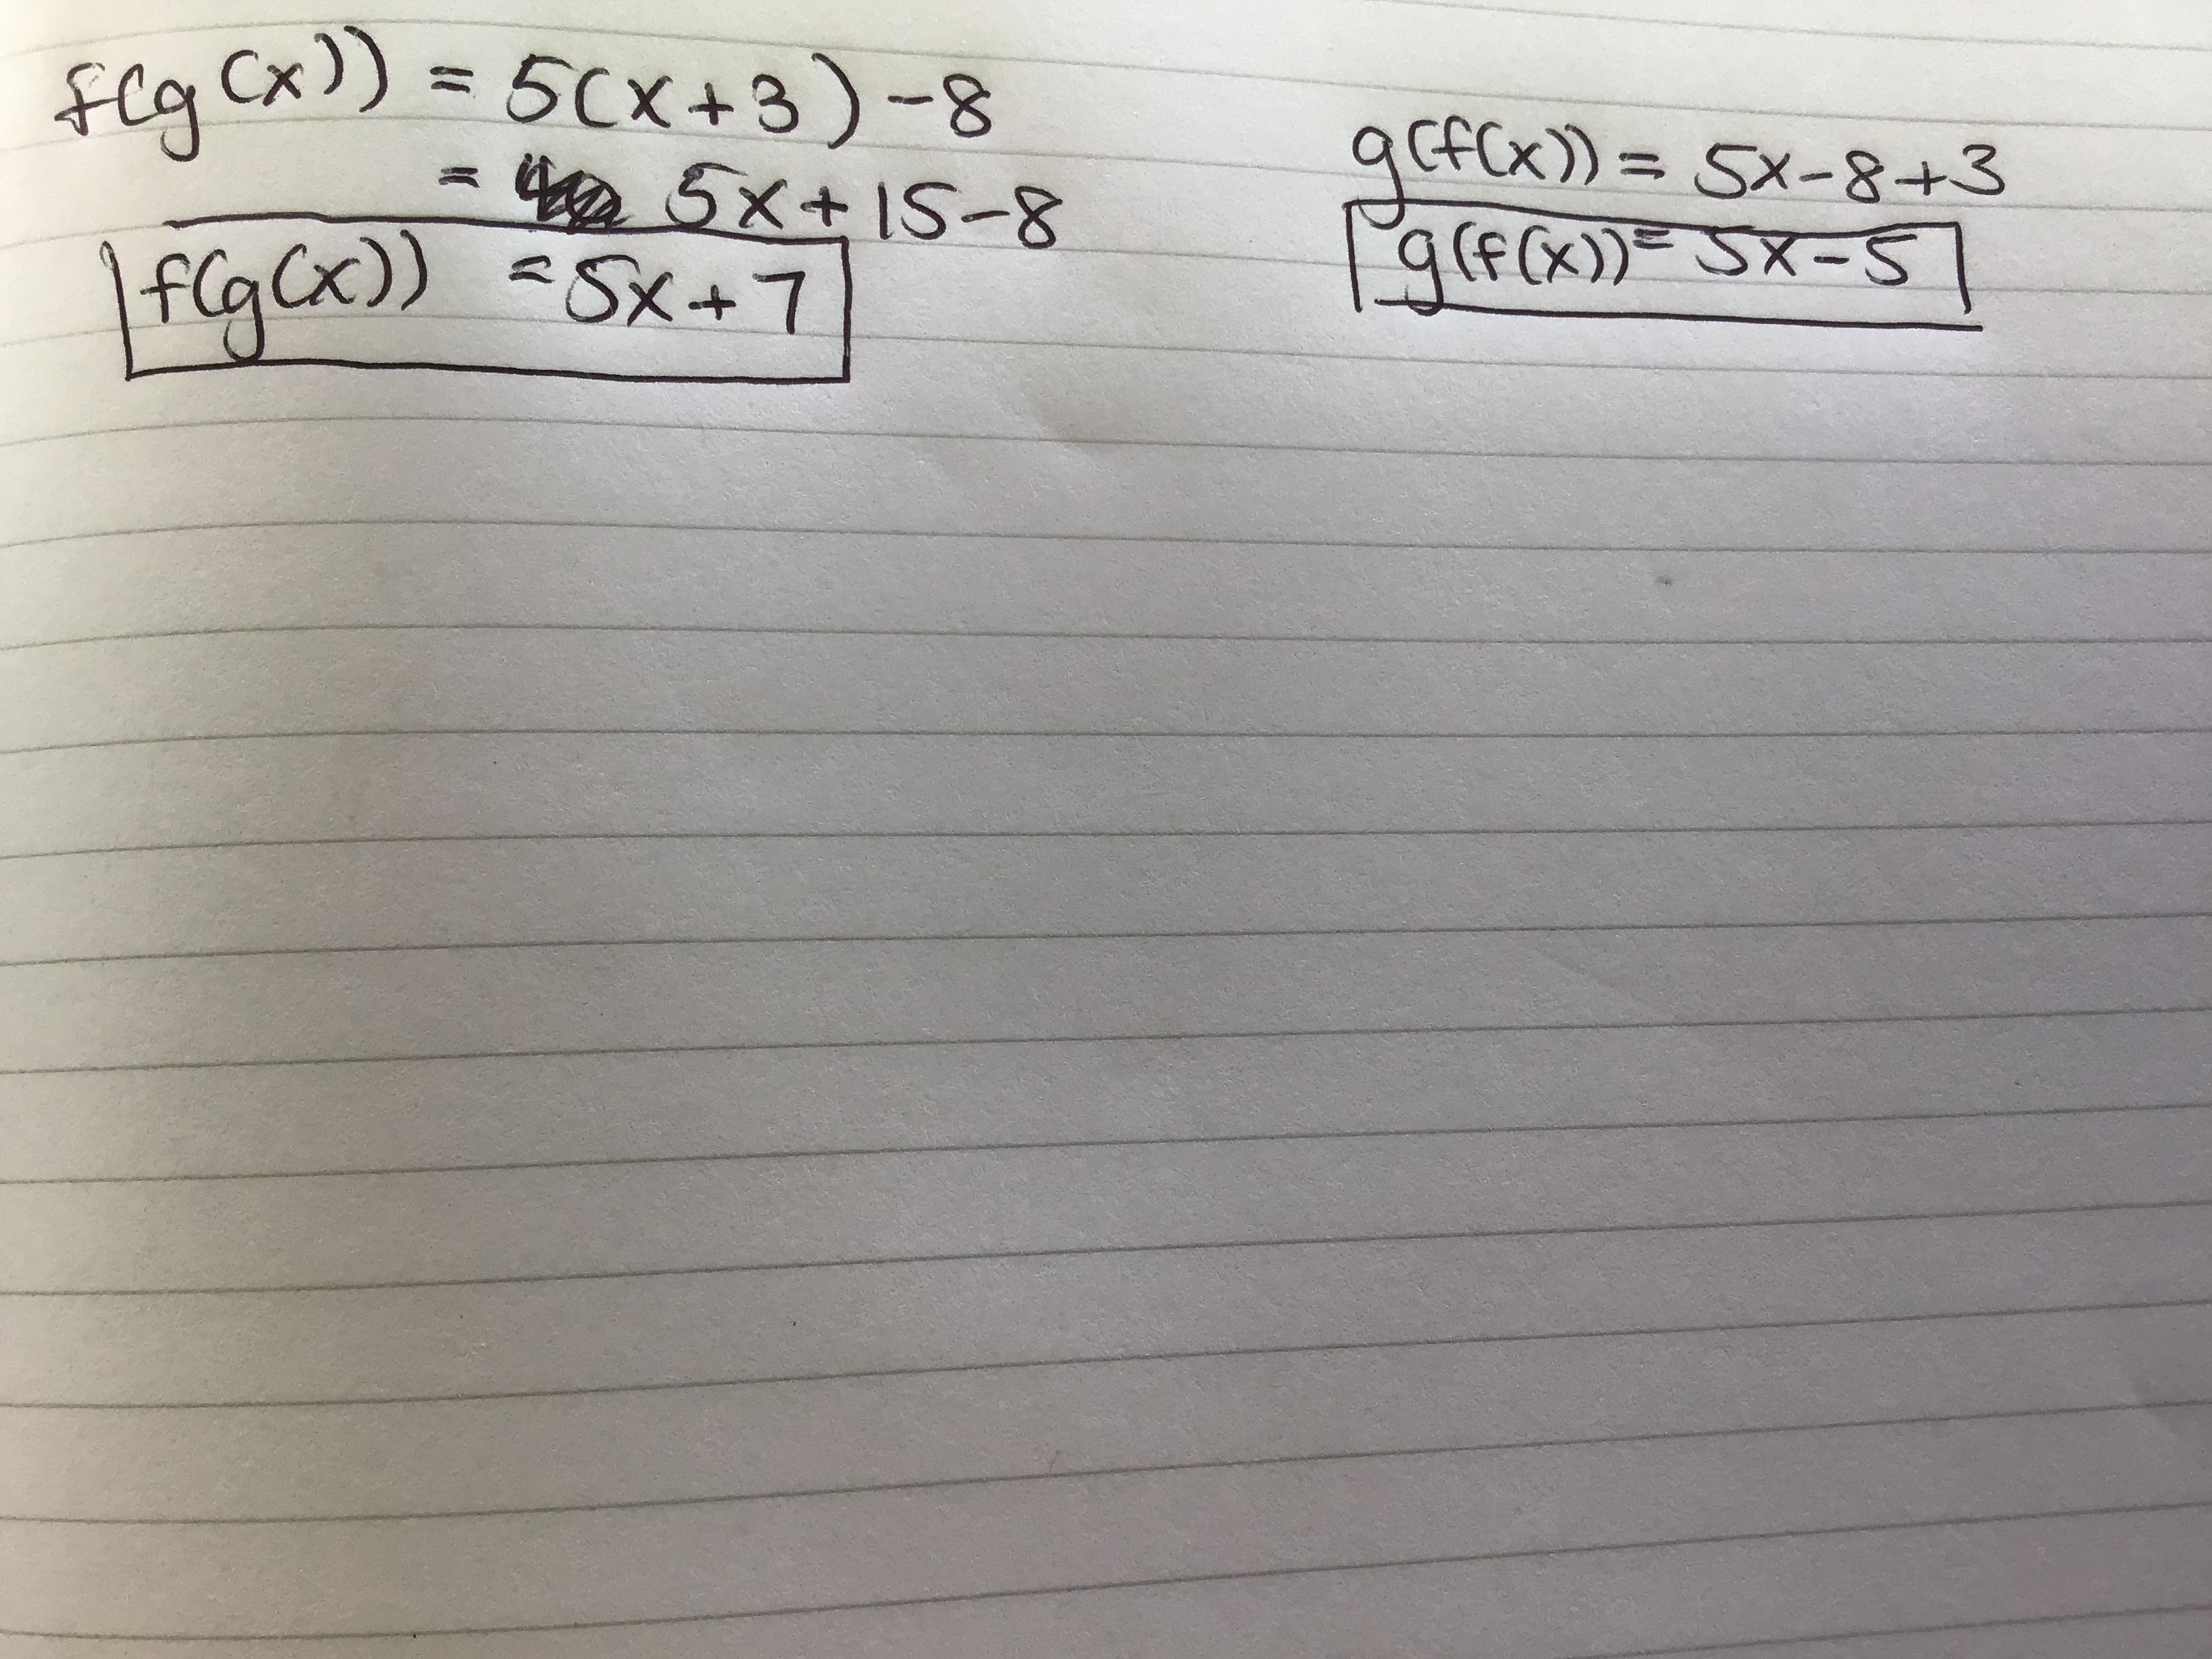 f(g(x)) = 5(x+3) -8
= 5x+15-8
f(g(x)) = 5x+7
g(f(x)) = 5x-8+3
g(f(x)) = 5x-5